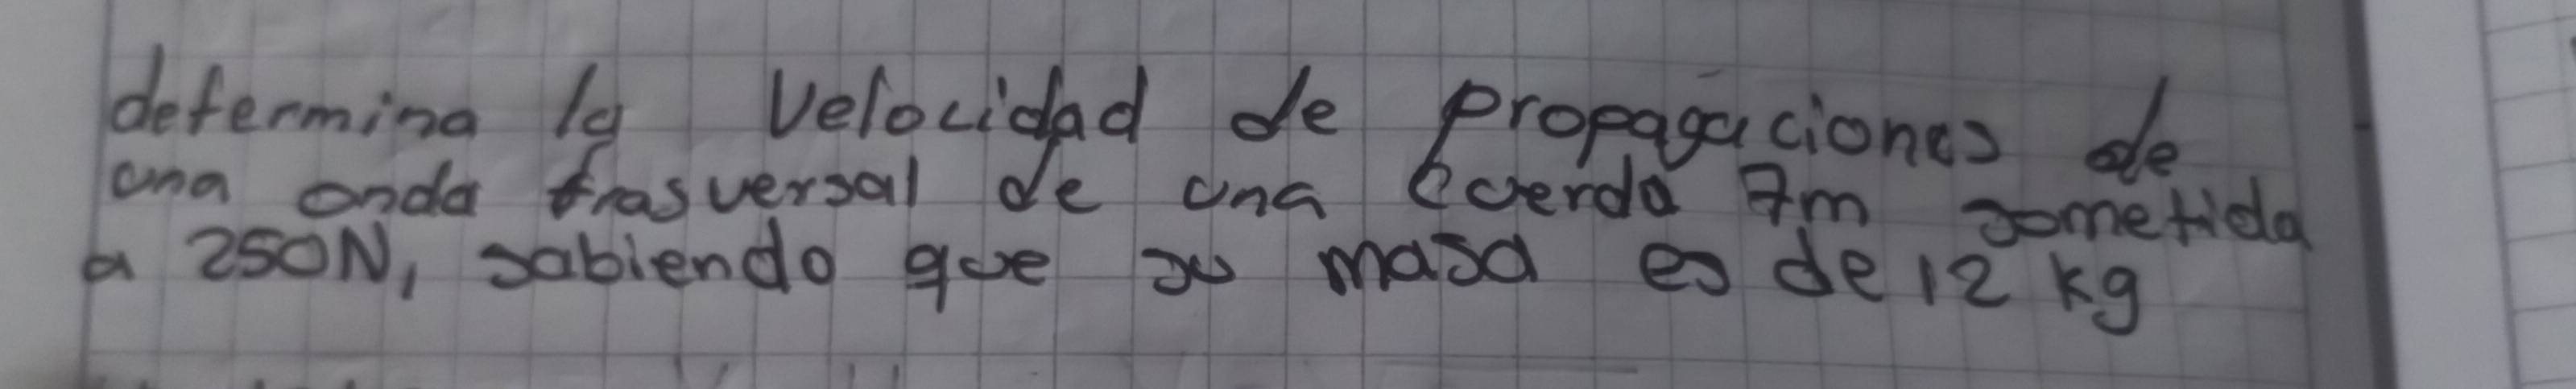 determina la velocidad de propagaciones de
una onda trasversal de una cuerda 7m sometida
a 250N, sabiendo que su masa es de 12 kg